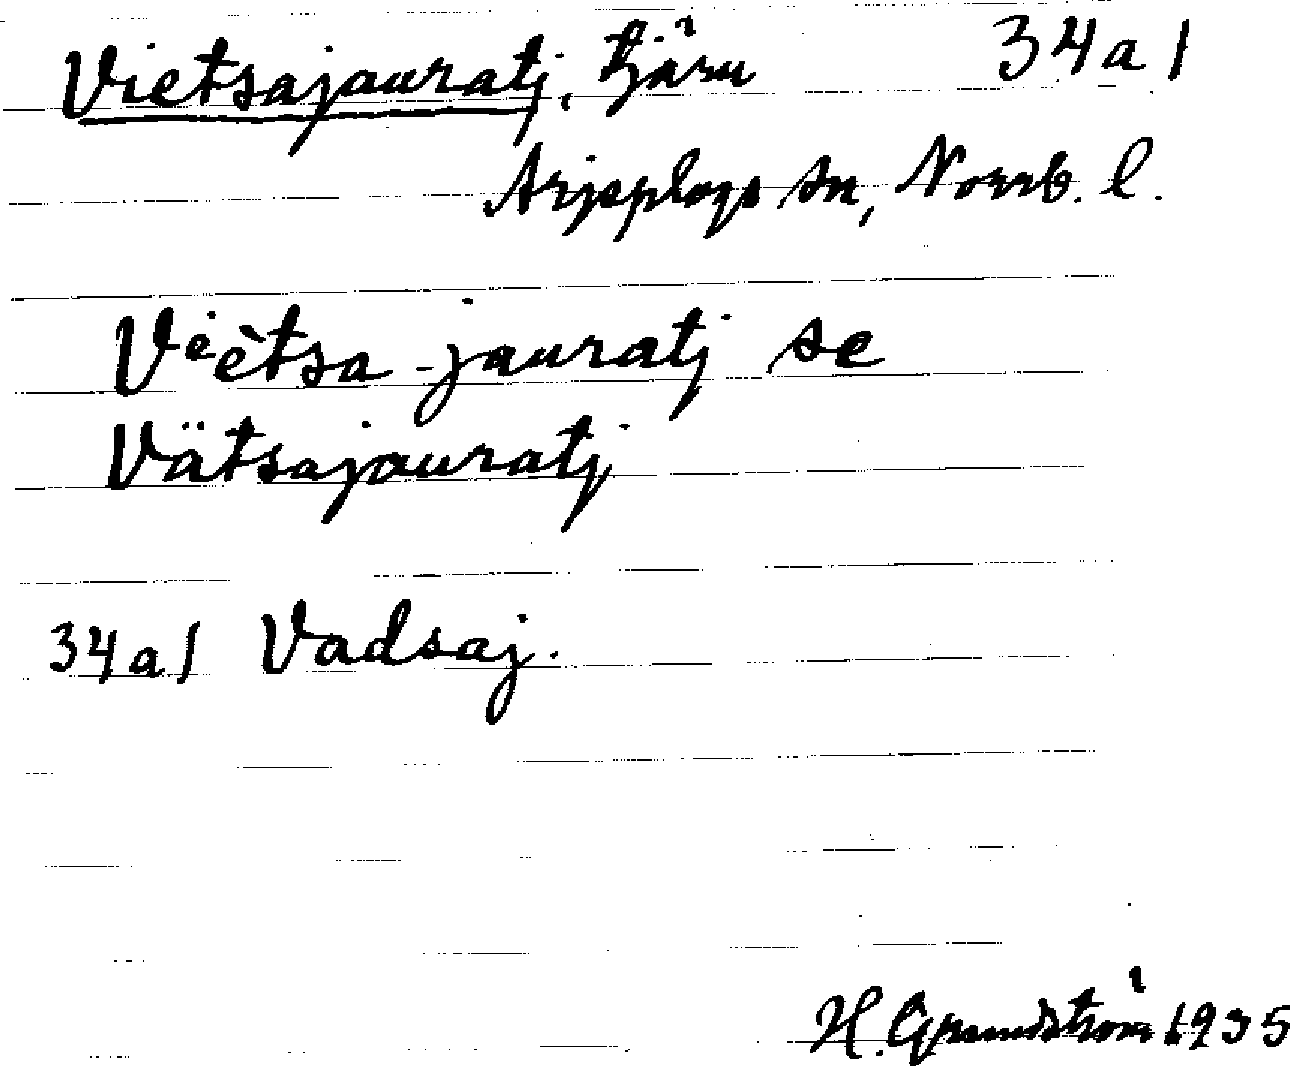 Vietsajauratj, tjärn 34a1
Arjeplogs sn, Norrb. l.
Vieètsa-jauratj se
Vätsajauratj
34a1 Vadsaj.
H. Grundström 1935